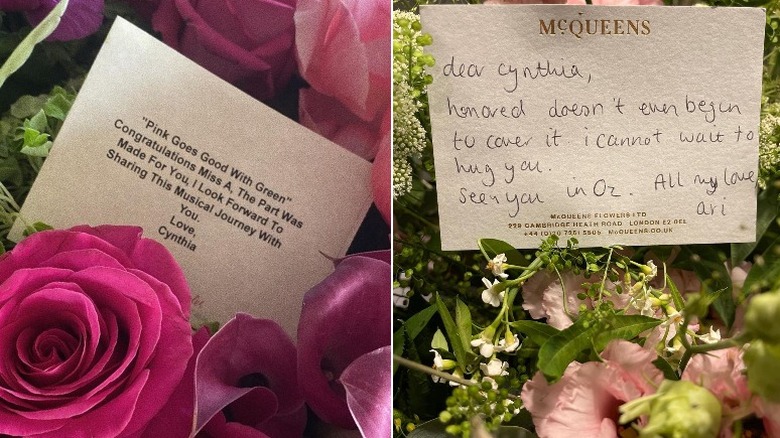 "Pink Goes Good With Green"
Congratulations Miss A, The Part Was
Made For You, I Look Forward To
Sharing This Musical Journey With
You.
Love,
Cynthia
McQUEENS
dear cynthia,
honored doesn't even begin
to cover it i cannot wait to
hug you.
see you in Oz. All my love,
ari
McQUEENS FLOWERS LTD
229 CAMBRIDGE HEATH ROAD LONDON E2 0EL
McQUEENS.CO.UK